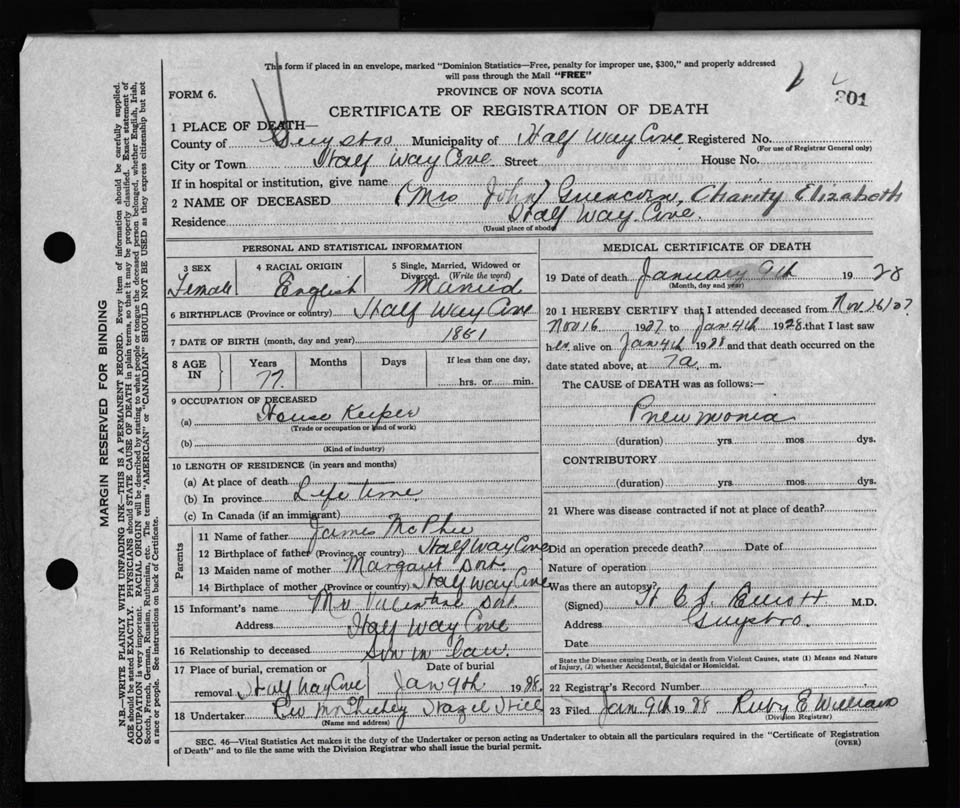 This form if placed in an envelope, marked "Dominion Statistics—Free, penalty for improper use, $300," and properly addressed
will pass through the Mail "FREE"
FORM 6.
PROVINCE OF NOVA SCOTIA
301
CERTIFICATE OF REGISTRATION OF DEATH
1 PLACE OF DEATH—
County of Guysboro Municipality of Half Way Cove Registered No.
(For use of Registrar General only)
City or Town Half Way Cove Street House No.
If in hospital or institution, give name
2 NAME OF DECEASED (Mrs John) Charity Elizabeth
Residence Half Way Cove.
(Usual place of abode)
PERSONAL AND STATISTICAL INFORMATION
3 SEX Female
4 RACIAL ORIGIN English
5 Single, Married, Widowed or Divorced. (Write the word) Married
6 BIRTHPLACE (Province or country) Half Way Cove
7 DATE OF BIRTH (month, day and year) 1851
8 AGE IN Years 77. Months Days If less than one day, hrs. or min.
9 OCCUPATION OF DECEASED
(a) House Keeper
(Trade or occupation or kind of work)
(b)
(Kind of industry)
10 LENGTH OF RESIDENCE (in years and months)
(a) At place of death
(b) In province Life time
(c) In Canada (if an immigrant)
Parents
11 Name of father James McPhee
12 Birthplace of father (Province or country) Half Way Cove
13 Maiden name of mother Margaret Dort.
14 Birthplace of mother (Province or country) Half Way Cove
15 Informant's name Mr Valentine Dort
Address Half Way Cove
16 Relationship to deceased Son in law.
17 Place of burial, cremation or removal Half Way Cove
Date of burial Jan 9th 1928.
18 Undertaker Hazel Hill
(Name and address)
MEDICAL CERTIFICATE OF DEATH
19 Date of death January 9th 1928
(Month, day and year)
20 I HEREBY CERTIFY that I attended deceased from Nov. 16/27
Nov 16 1927 to Jan 4th 1928 that I last saw
her alive on Jan 4th 1928 and that death occurred on the
date stated above, at 7a. m.
The CAUSE OF DEATH was as follows:—
Pneumonia
(duration) yrs mos dys.
CONTRIBUTORY
(duration) yrs. mos dys.
21 Where was disease contracted if not at place of death?
Did an operation precede death? Date of
Nature of operation
Was there an autopsy?
(Signed) Elliott M.D.
Address Guysboro.
Date
State the Disease causing Death, or in death from Violent Causes, state (1) Means and Nature
of Injury, (2) whether Accidental, Suicidal or Homicidal.
22 Registrar's Record Number
23 Filed Jan. 9th 1928 Ruby E Williams
(Division Registrar)
SEC. 46—Vital Statistics Act makes it the duty of the Undertaker or person acting as Undertaker to obtain all the particulars required in the "Certificate of Registration
of Death" and to file the same with the Division Registrar who shall issue the burial permit.
(OVER)
MARGIN RESERVED FOR BINDING
N.B.—WRITE PLAINLY WITH UNFADING INK—THIS IS A PERMANENT RECORD. Every item of information should be carefully supplied.
AGE should be stated EXACTLY. PHYSICIANS should STATE CAUSE OF DEATH in plain terms, so that it may be properly classified. Exact statement of
OCCUPATION is very important. RACIAL ORIGIN will be described by stating to what people or tongue the deceased person belonged, whether English, Irish,
Scotch, French, German, Russian, Ruthenian, etc. The terms "AMERICAN" or "CANADIAN" SHOULD NOT BE USED as they express citizenship but not
a race or people. See instructions on back of Certificate.